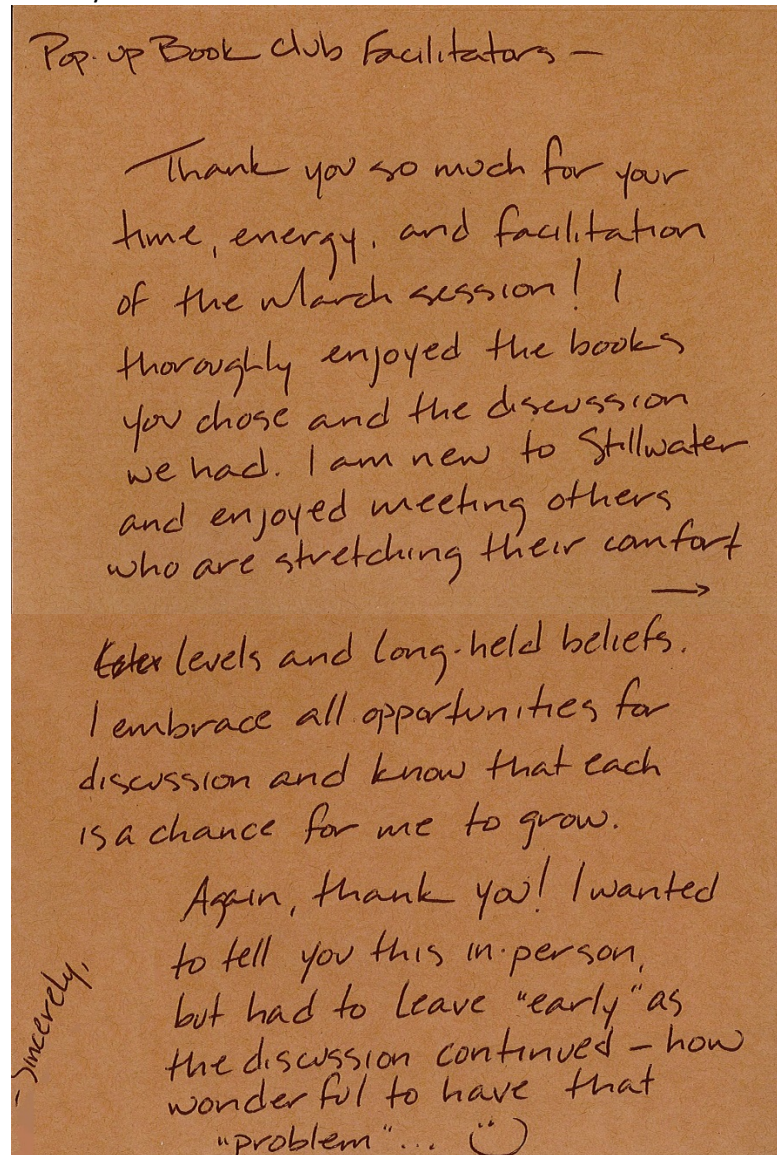 Pop-up Book Club Facilitators —
Thank you so much for your
time, energy, and facilitation
of the March session! I
thoroughly enjoyed the books
you chose and the discussion
we had. I am new to Stillwater
and enjoyed meeting others
who are stretching their comfort
→
levels and long-held beliefs.
I embrace all opportunities for
discussion and know that each
is a chance for me to grow.
Again, thank you! I wanted
to tell you this in-person,
but had to leave "early" as
the discussion continued — how
wonderful to have that
"problem"... :)
- Sincerely,